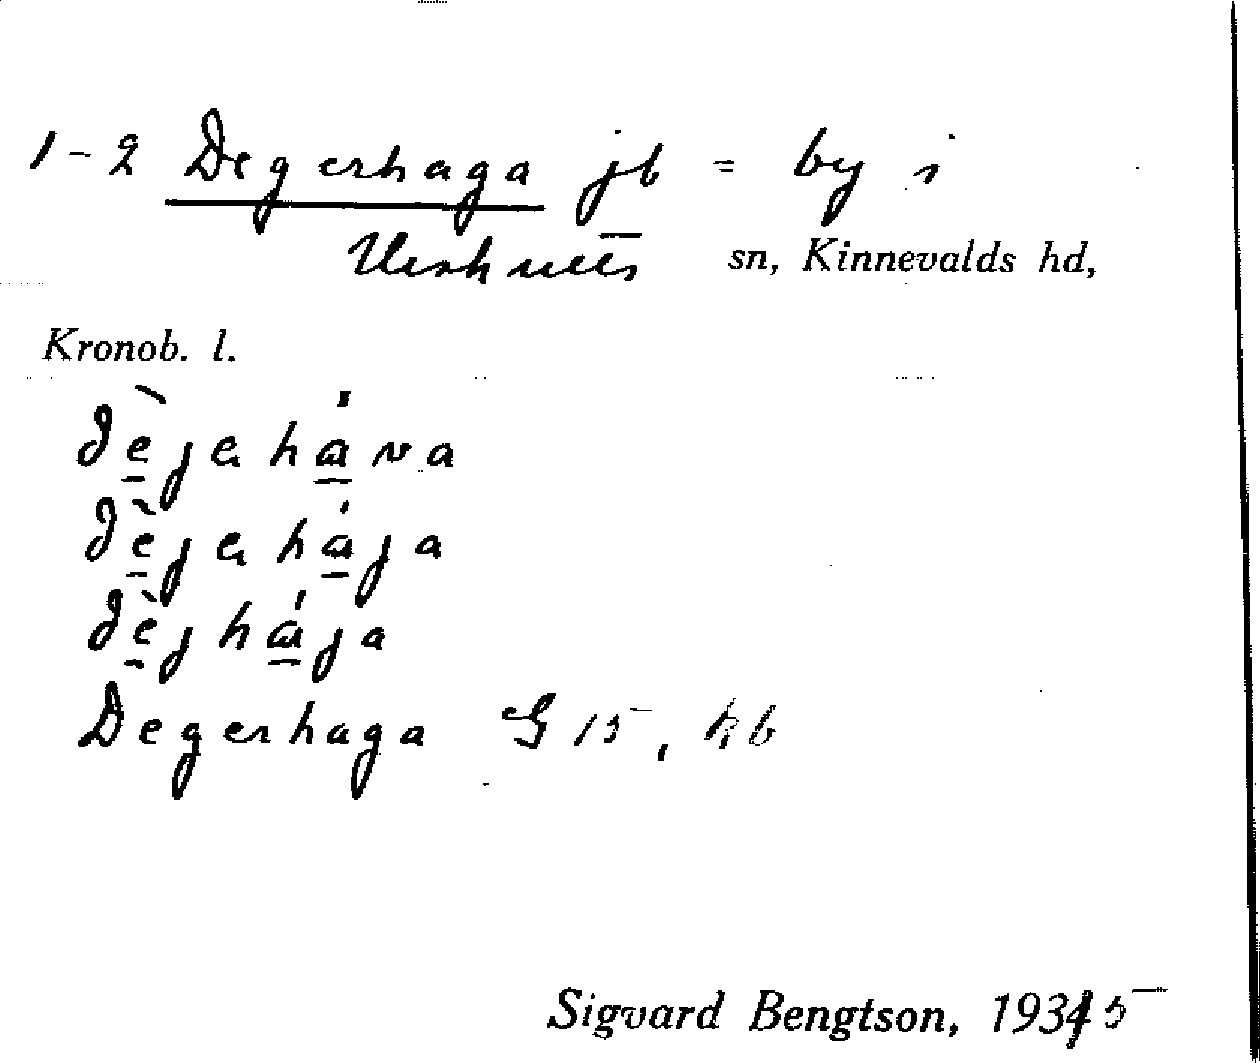 1-2 Degerhaga jb = by i
Urshult sn, Kinnevalds hd,
Kronob. l.
dè̱jəhá̱va
dè̱jəhá̱ja
dè̱jhá̱ja
Degerhaga G 15, kb
Sigvard Bengtson, 1935